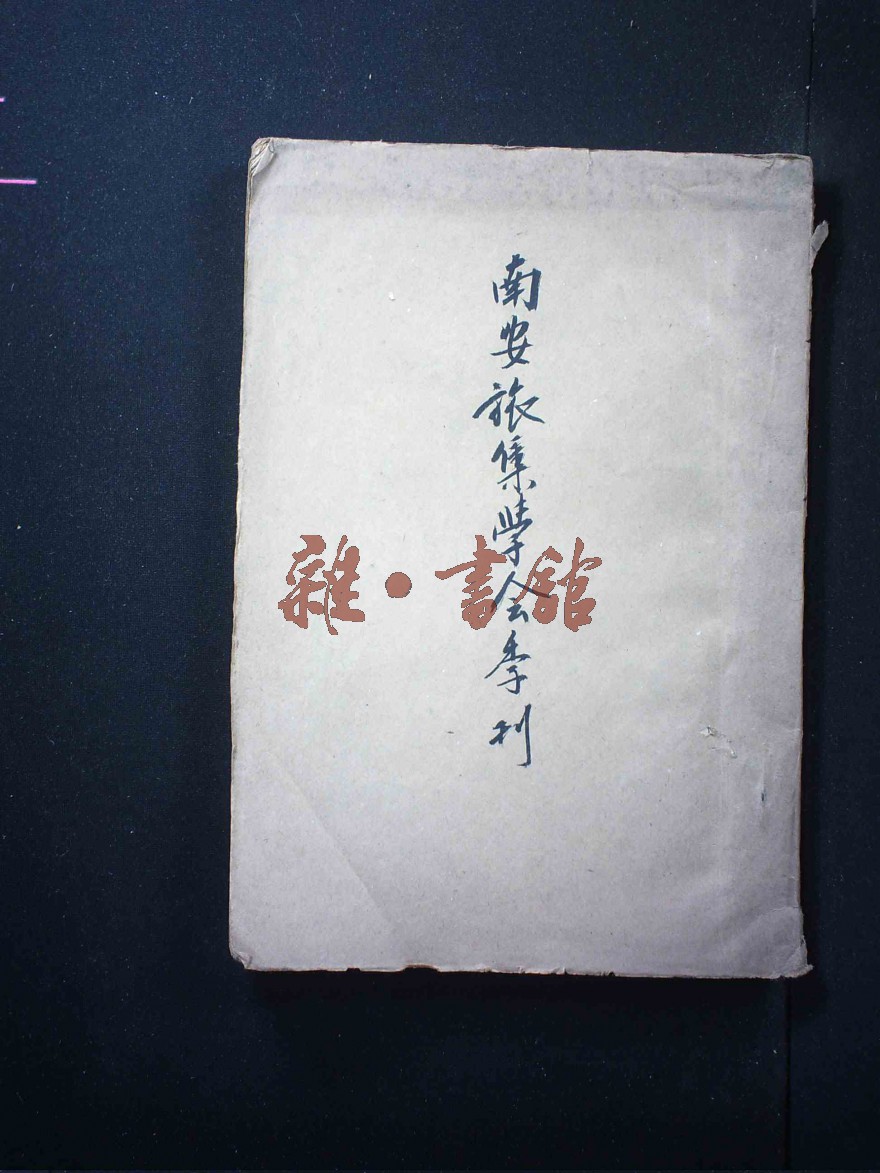 南安旅集學会季刊
雜·書館